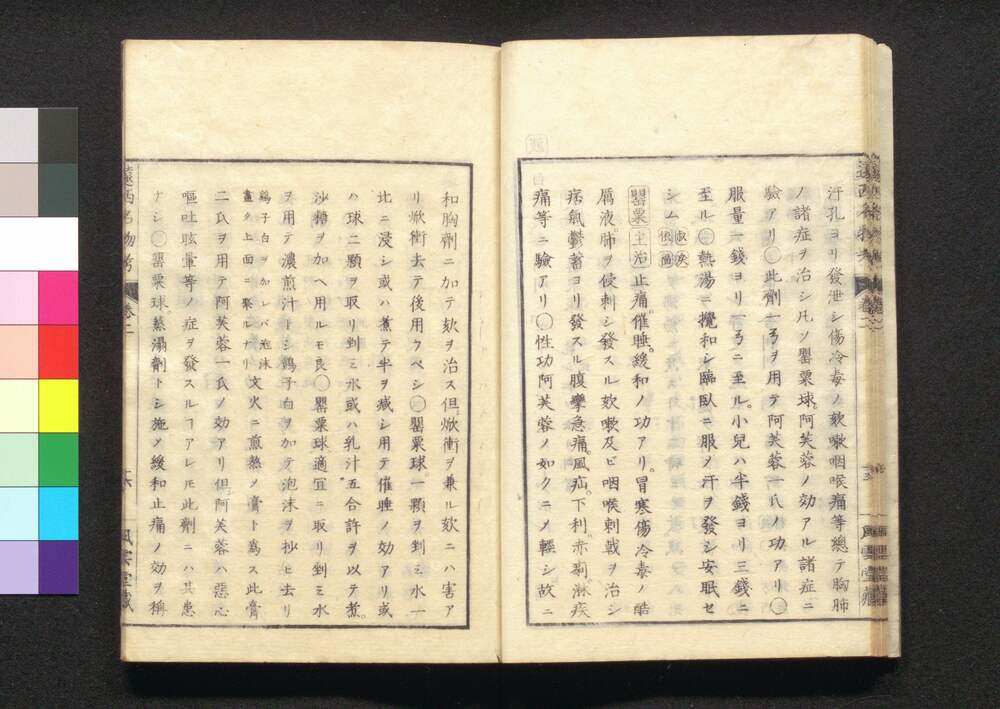 汗孔ヨリ發泄シ傷冷毒ノ欬嗽咽喉痛等總テ胸肺
ノ諸症ヲ治シ凡ソ罌粟球阿芙蓉ノ効アル諸症ニ
驗アリ〇此劑一ヲ用テ阿芙蓉一氏ノ功アリ〇
服量一錢ヨリ一ニ至ル小兒ハ半錢ヨリ三錢ニ
至ル〇熱湯ニ攪和シ臨臥ニ服メ汗ヲ發シ安眠セ
シム
罌粟 主治 止痛催睡緩和ノ功アリ冒寒傷冷毒ノ酷
厲液肺ヲ侵刺シ發スル欬嗽及ビ咽喉刺戟ヲ治シ
痞氣鬱蓄ヨリ發スル腹攣急痛風疝下利赤痢淋疾
痛等ニ驗アリ〇性功阿芙蓉ノ如クニメ輕シ故ニ
和胸劑ニ加テ欬ヲ治ス但焮衝ヲ兼ル欬ニハ害ア
リ焮衝去テ後用ウベシ〇罌粟球一顆ヲ剉ミ水一
比ニ浸シ或ハ煮テ半ヲ減シ用テ催睡ノ効アリ或
ハ球二顆ヲ取リ剉ミ水或ハ乳汁五合許ヲ以テ煮
沙糖ヲ加ヘ用ルモ良〇罌粟球適宜ニ取リ剉ミ水
ヲ用テ濃煎汁トシ鷄子白ヲ加テ泡沫ヲ抄ヒ去リ
鷄子白ヲ加レバ泡沫盡ク上面ニ聚ルナリ文火ニ煎熬メ膏ト爲ス此膏
二氏ヲ用テ阿芙蓉一氏ノ効アリ但阿芙蓉ハ惡心
嘔吐眩暈等ノ症ヲ發スルヿアレ𪜈此劑ニハ其患
ナシ〇罌粟球蒸溻劑トシ施メ緩和止痛ノ効ヲ稱
遠西名物考 卷二 十六 風雲堂藏